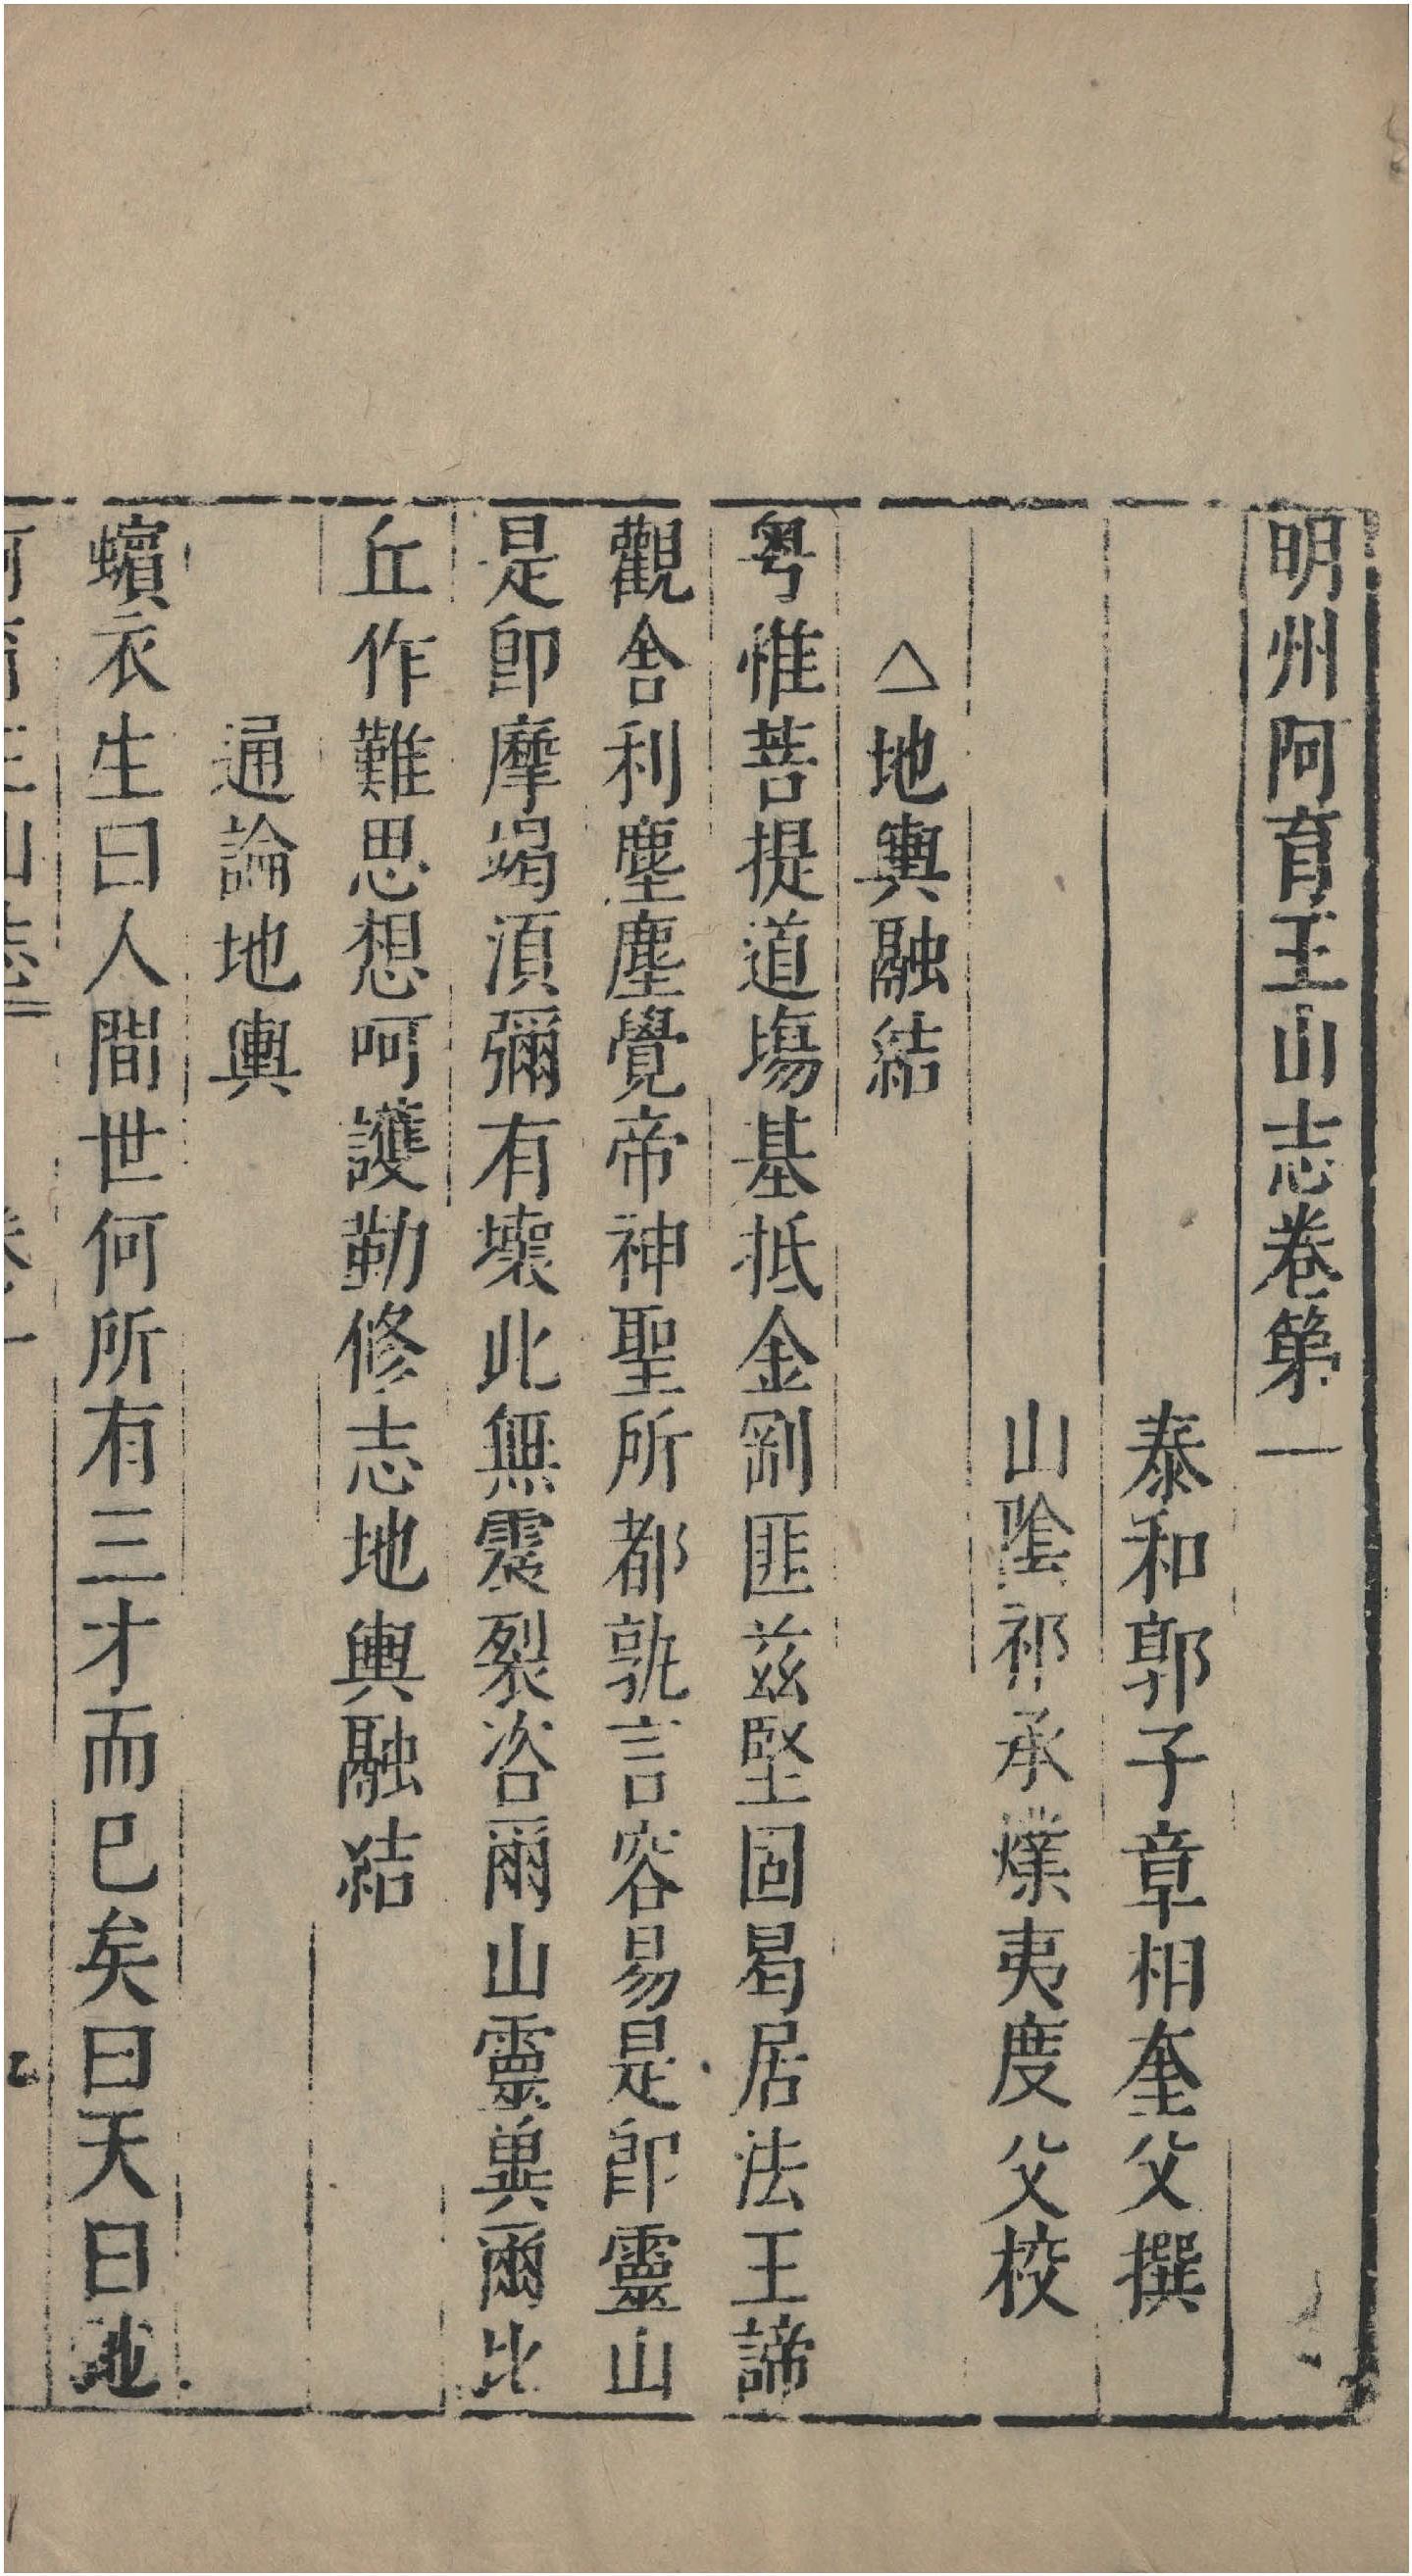 明州阿育王山志卷第一
泰和郭子章相奎父撰
山陰祁承㸁夷度父校
△地輿融結
粤惟菩提道塲基抵金剛匪兹堅固曷居法王諦
觀舍利塵塵覺帝神聖所都孰言容易是卽靈山
是卽摩竭須彌有壞此無震裂咨爾山靈異爾比
丘作難思想呵護勤修志地輿融結
通論地輿
蠙衣生曰人間世何所有三才而已矣曰天曰地